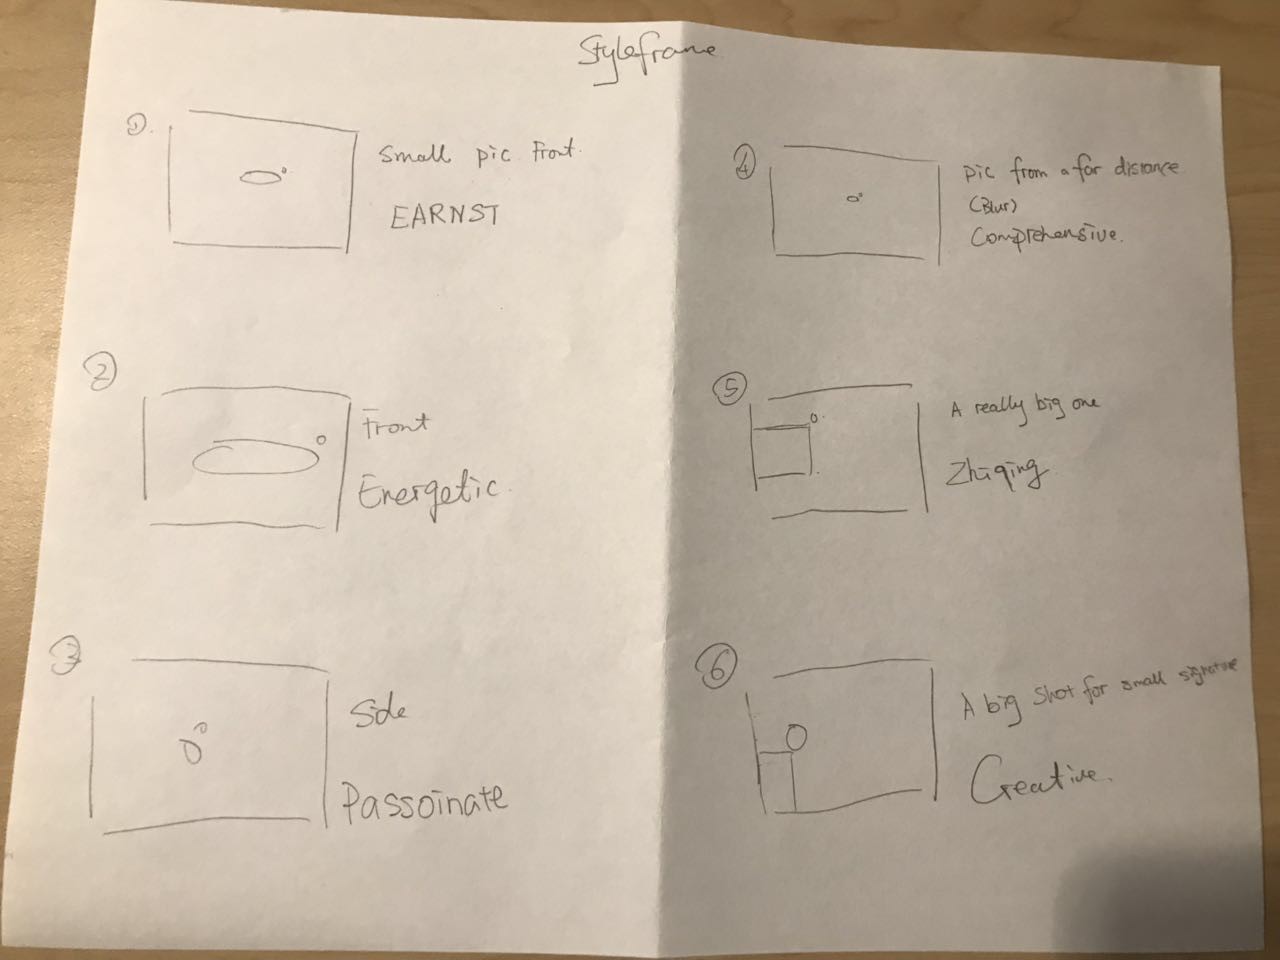 Styleframe
①.
small pic front.
EARNST
②
Front
Energetic.
③
Side
Passoinate
④
pic from a far distance
(Blur)
Comprehensive.
⑤
A really big one
Zhiqing.
⑥
A big shot for small signature
Creative.